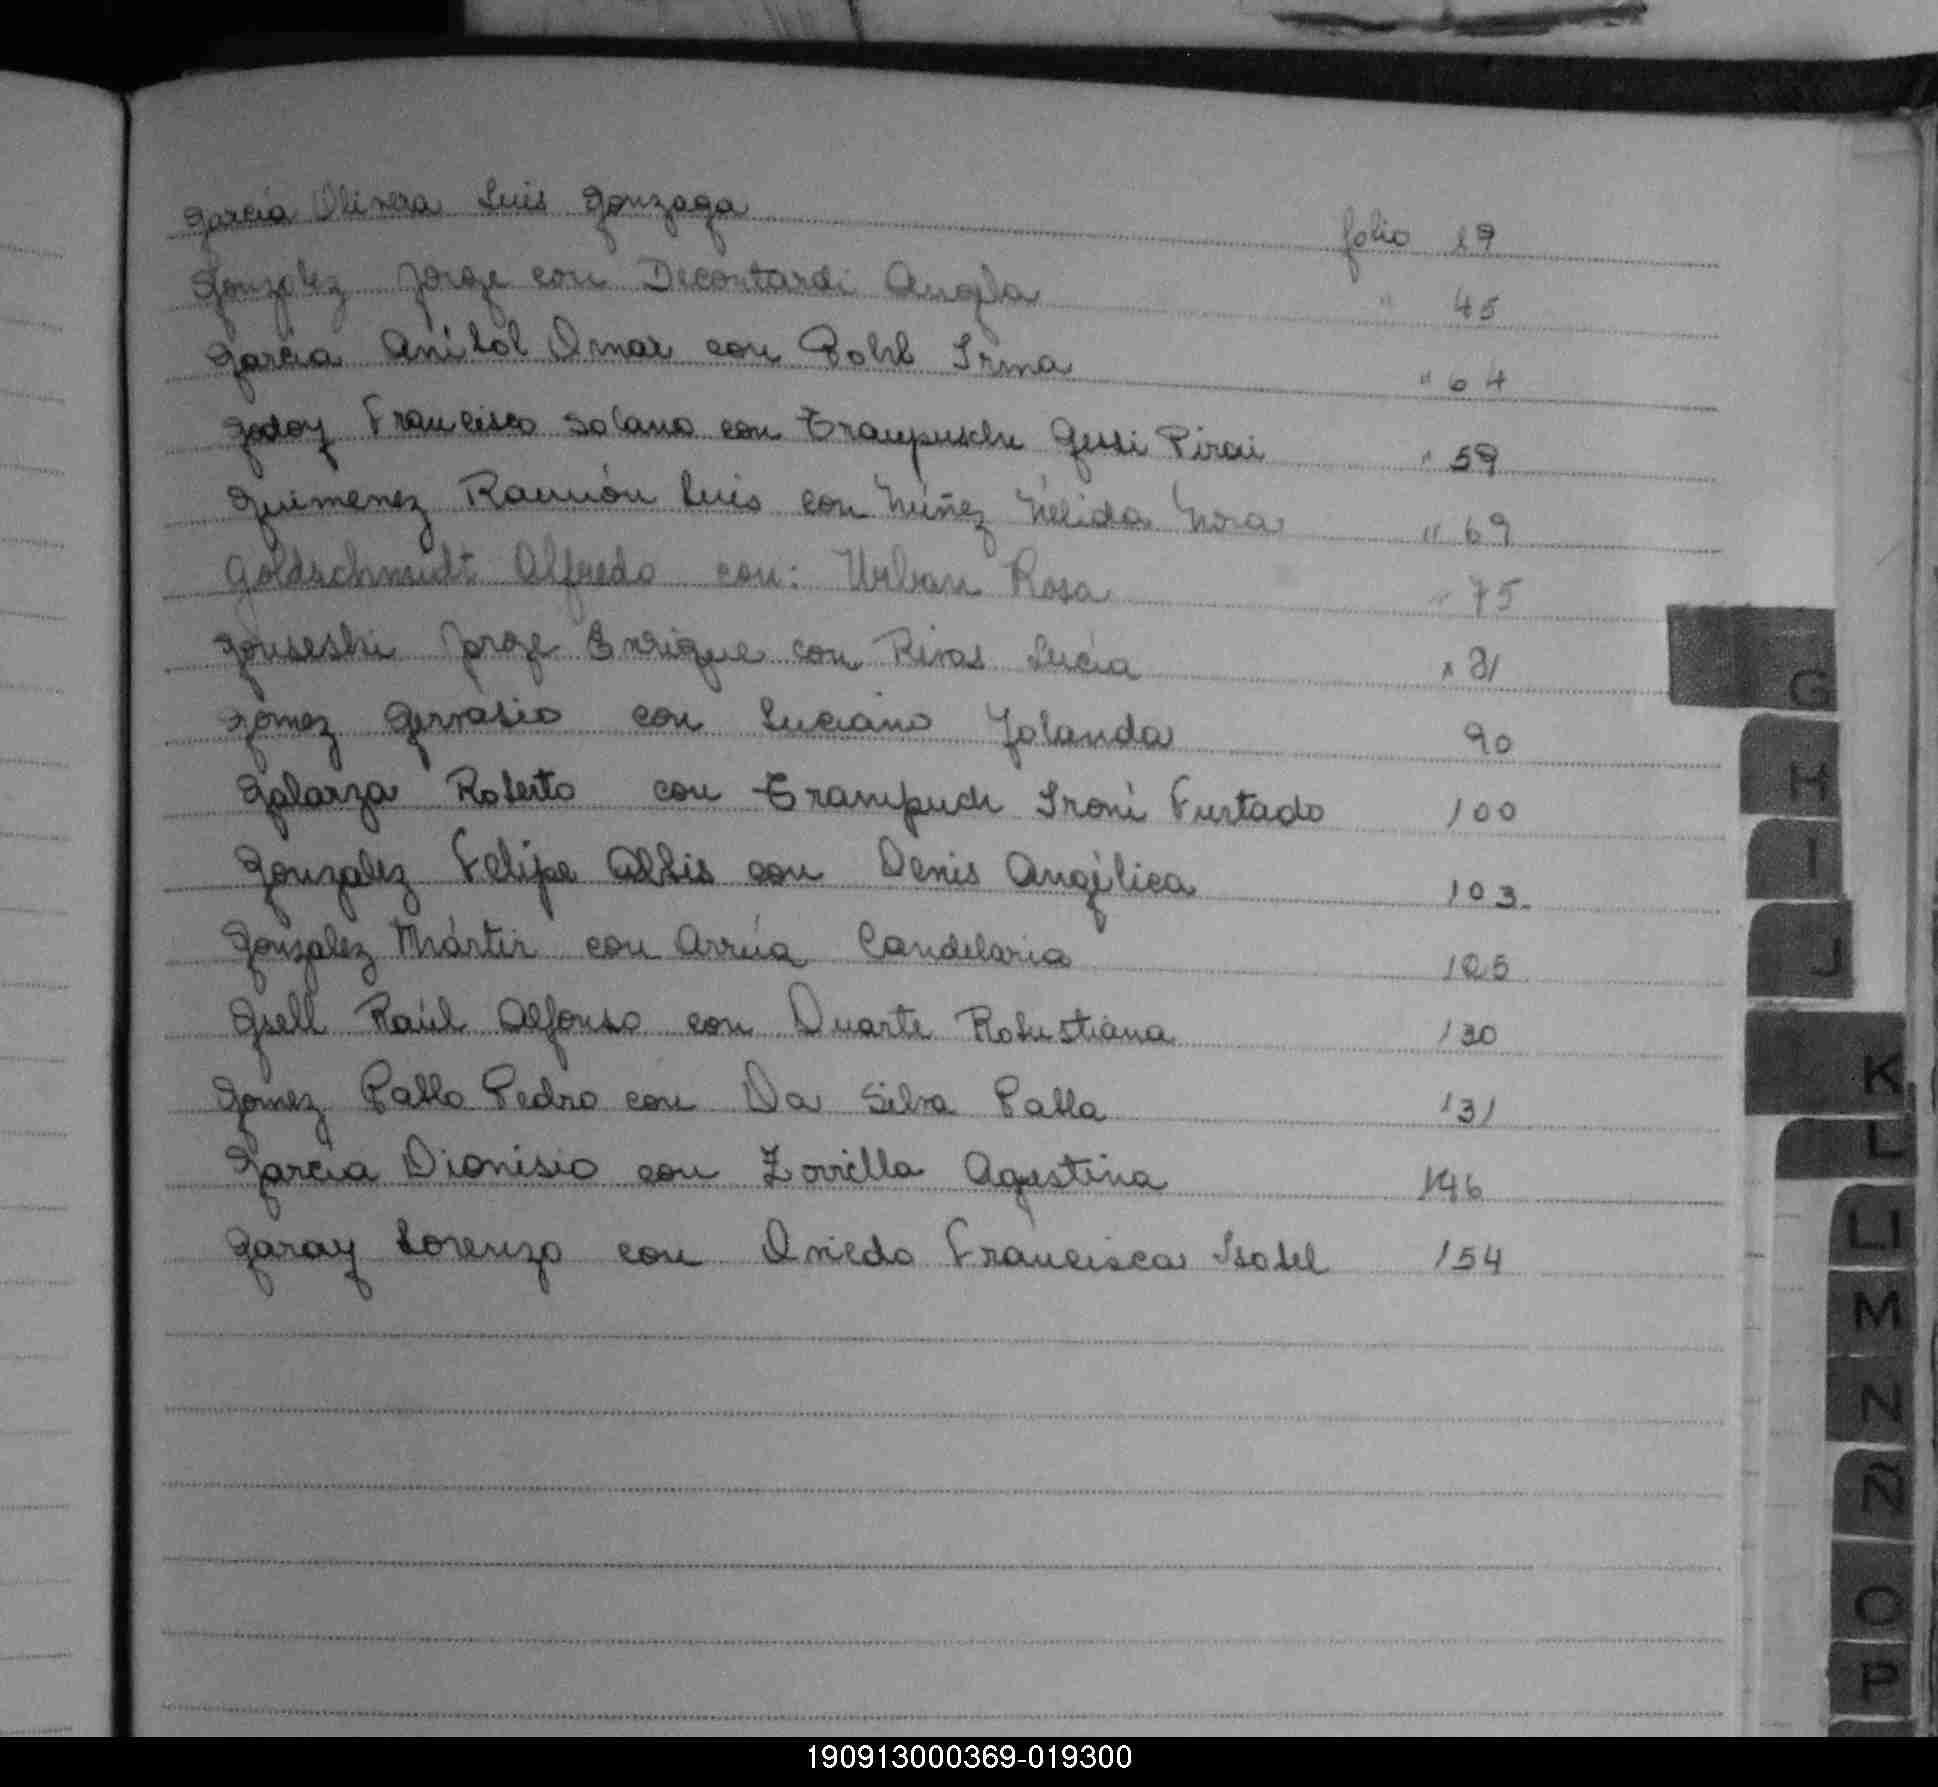 García Olivera Luis Gonzaga folio 19
Gonzalez Jorge con Decontardi Angela " 45
García Anibal Omar con Pohl Irma " 64
Godoy Francisco Solano con Gessi Pirai " 59
Guimenez Ramón Luis con Núñez Nélida Nora " 69
Goldschmidt Alfredo con: Urban Rosa " 75
Jorge Enrique con Rivas Lucía " 81
Gomez Gervasio con Luciano Yolanda 90
Galarza Roberto con Trampuch Ironi Furtado 100
Gonzalez Felipe Albis con Denis Angélica 103.
Gonzalez Mártir con Arrúa Candelaria 125
Gsell Raúl Alfonso con Duarte Robustiana 130
Gomez Pablo Pedro con Da Silva Pabla 131
García Dionisio con Zorrilla Agustina 146
Garay Lorenzo con Oviedo Francisca Isabel 154
G
H
I
J
K
L
Ll
M
N
Ñ
O
P
190913000369-019300